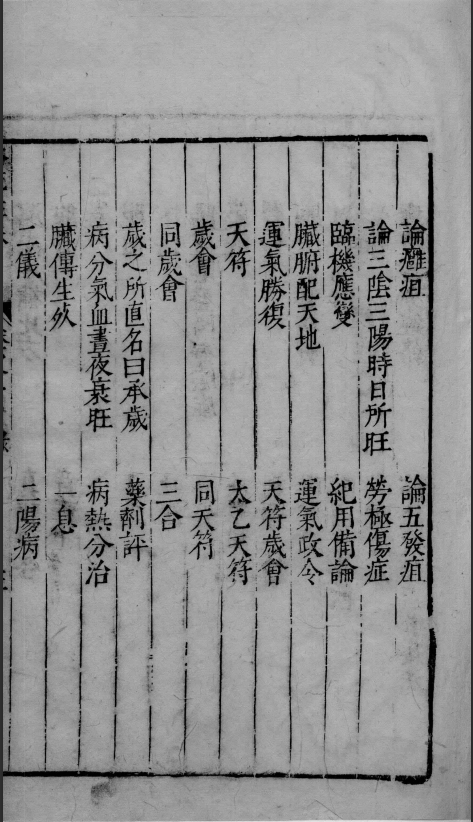 論癰疽　論五發疽
論三陰三陽時日所旺　勞極傷症
臨機應變　紀用備論
臟腑配天地　運氣政令
運氣勝復　天符歲會
天符　太乙天符
歲會　同天符
同歲會　三合
歲之所直名曰承歲　藥劑評
病分氣血晝夜衰旺　病熱分治
臟傳生死　一息
二儀　二陽病